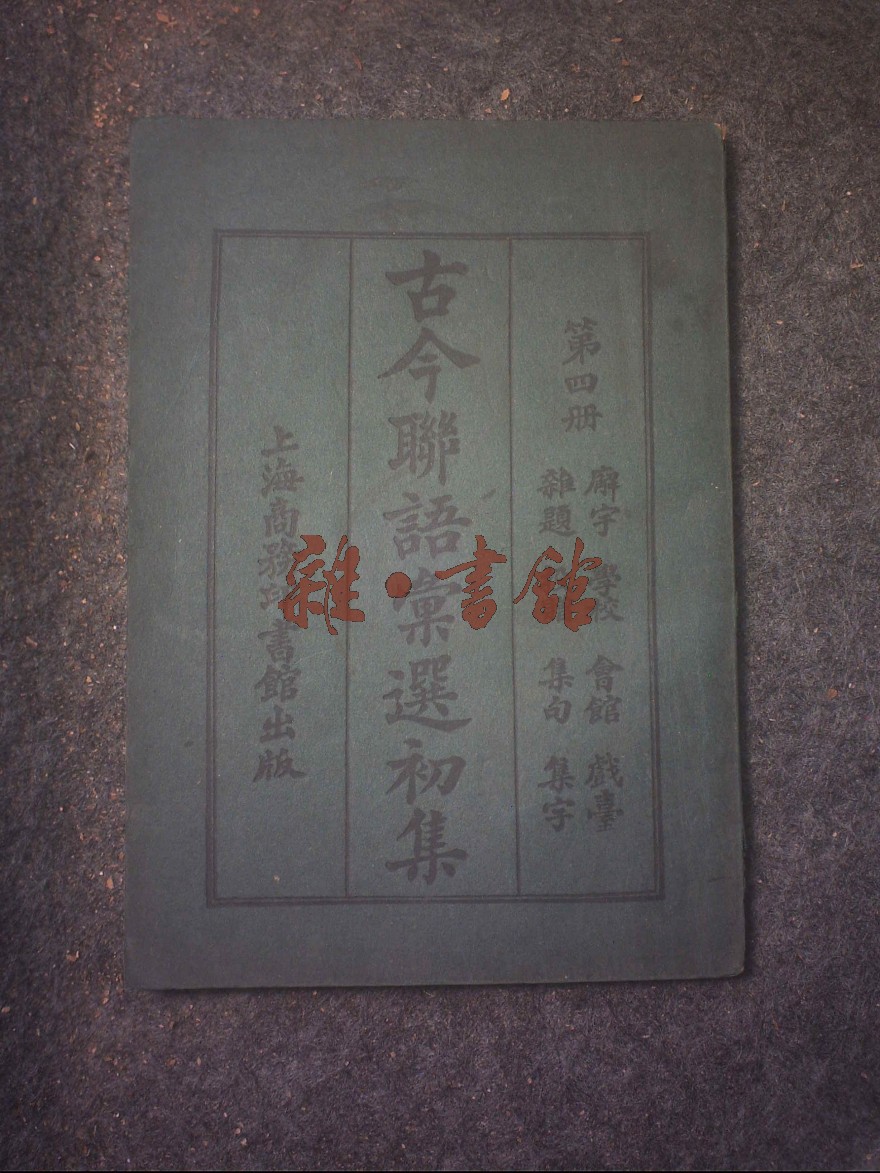 第四册
廨宇 學校 會館 戲臺
雜題 集句 集字
古今聯語彙選初集
上海商務印書館出版
雜·書館